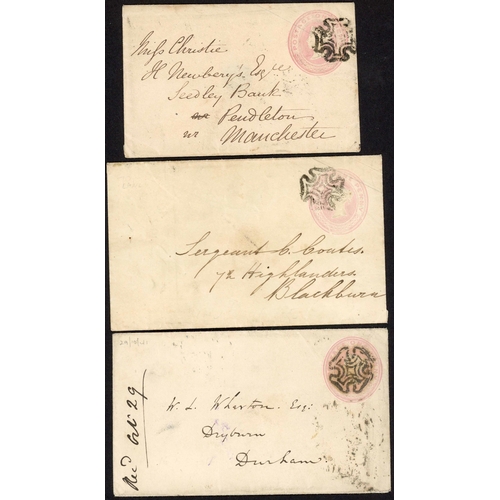 Miss Christie
H Newberys Esqre
Seedley Bank
nr Pendleton
nr Manchester
Sergeant C. Coutts.
72 Highlanders.
Blackburn
W. L. Wharton Esq:
Dryburn
Durham.
Rec'd Oct 29